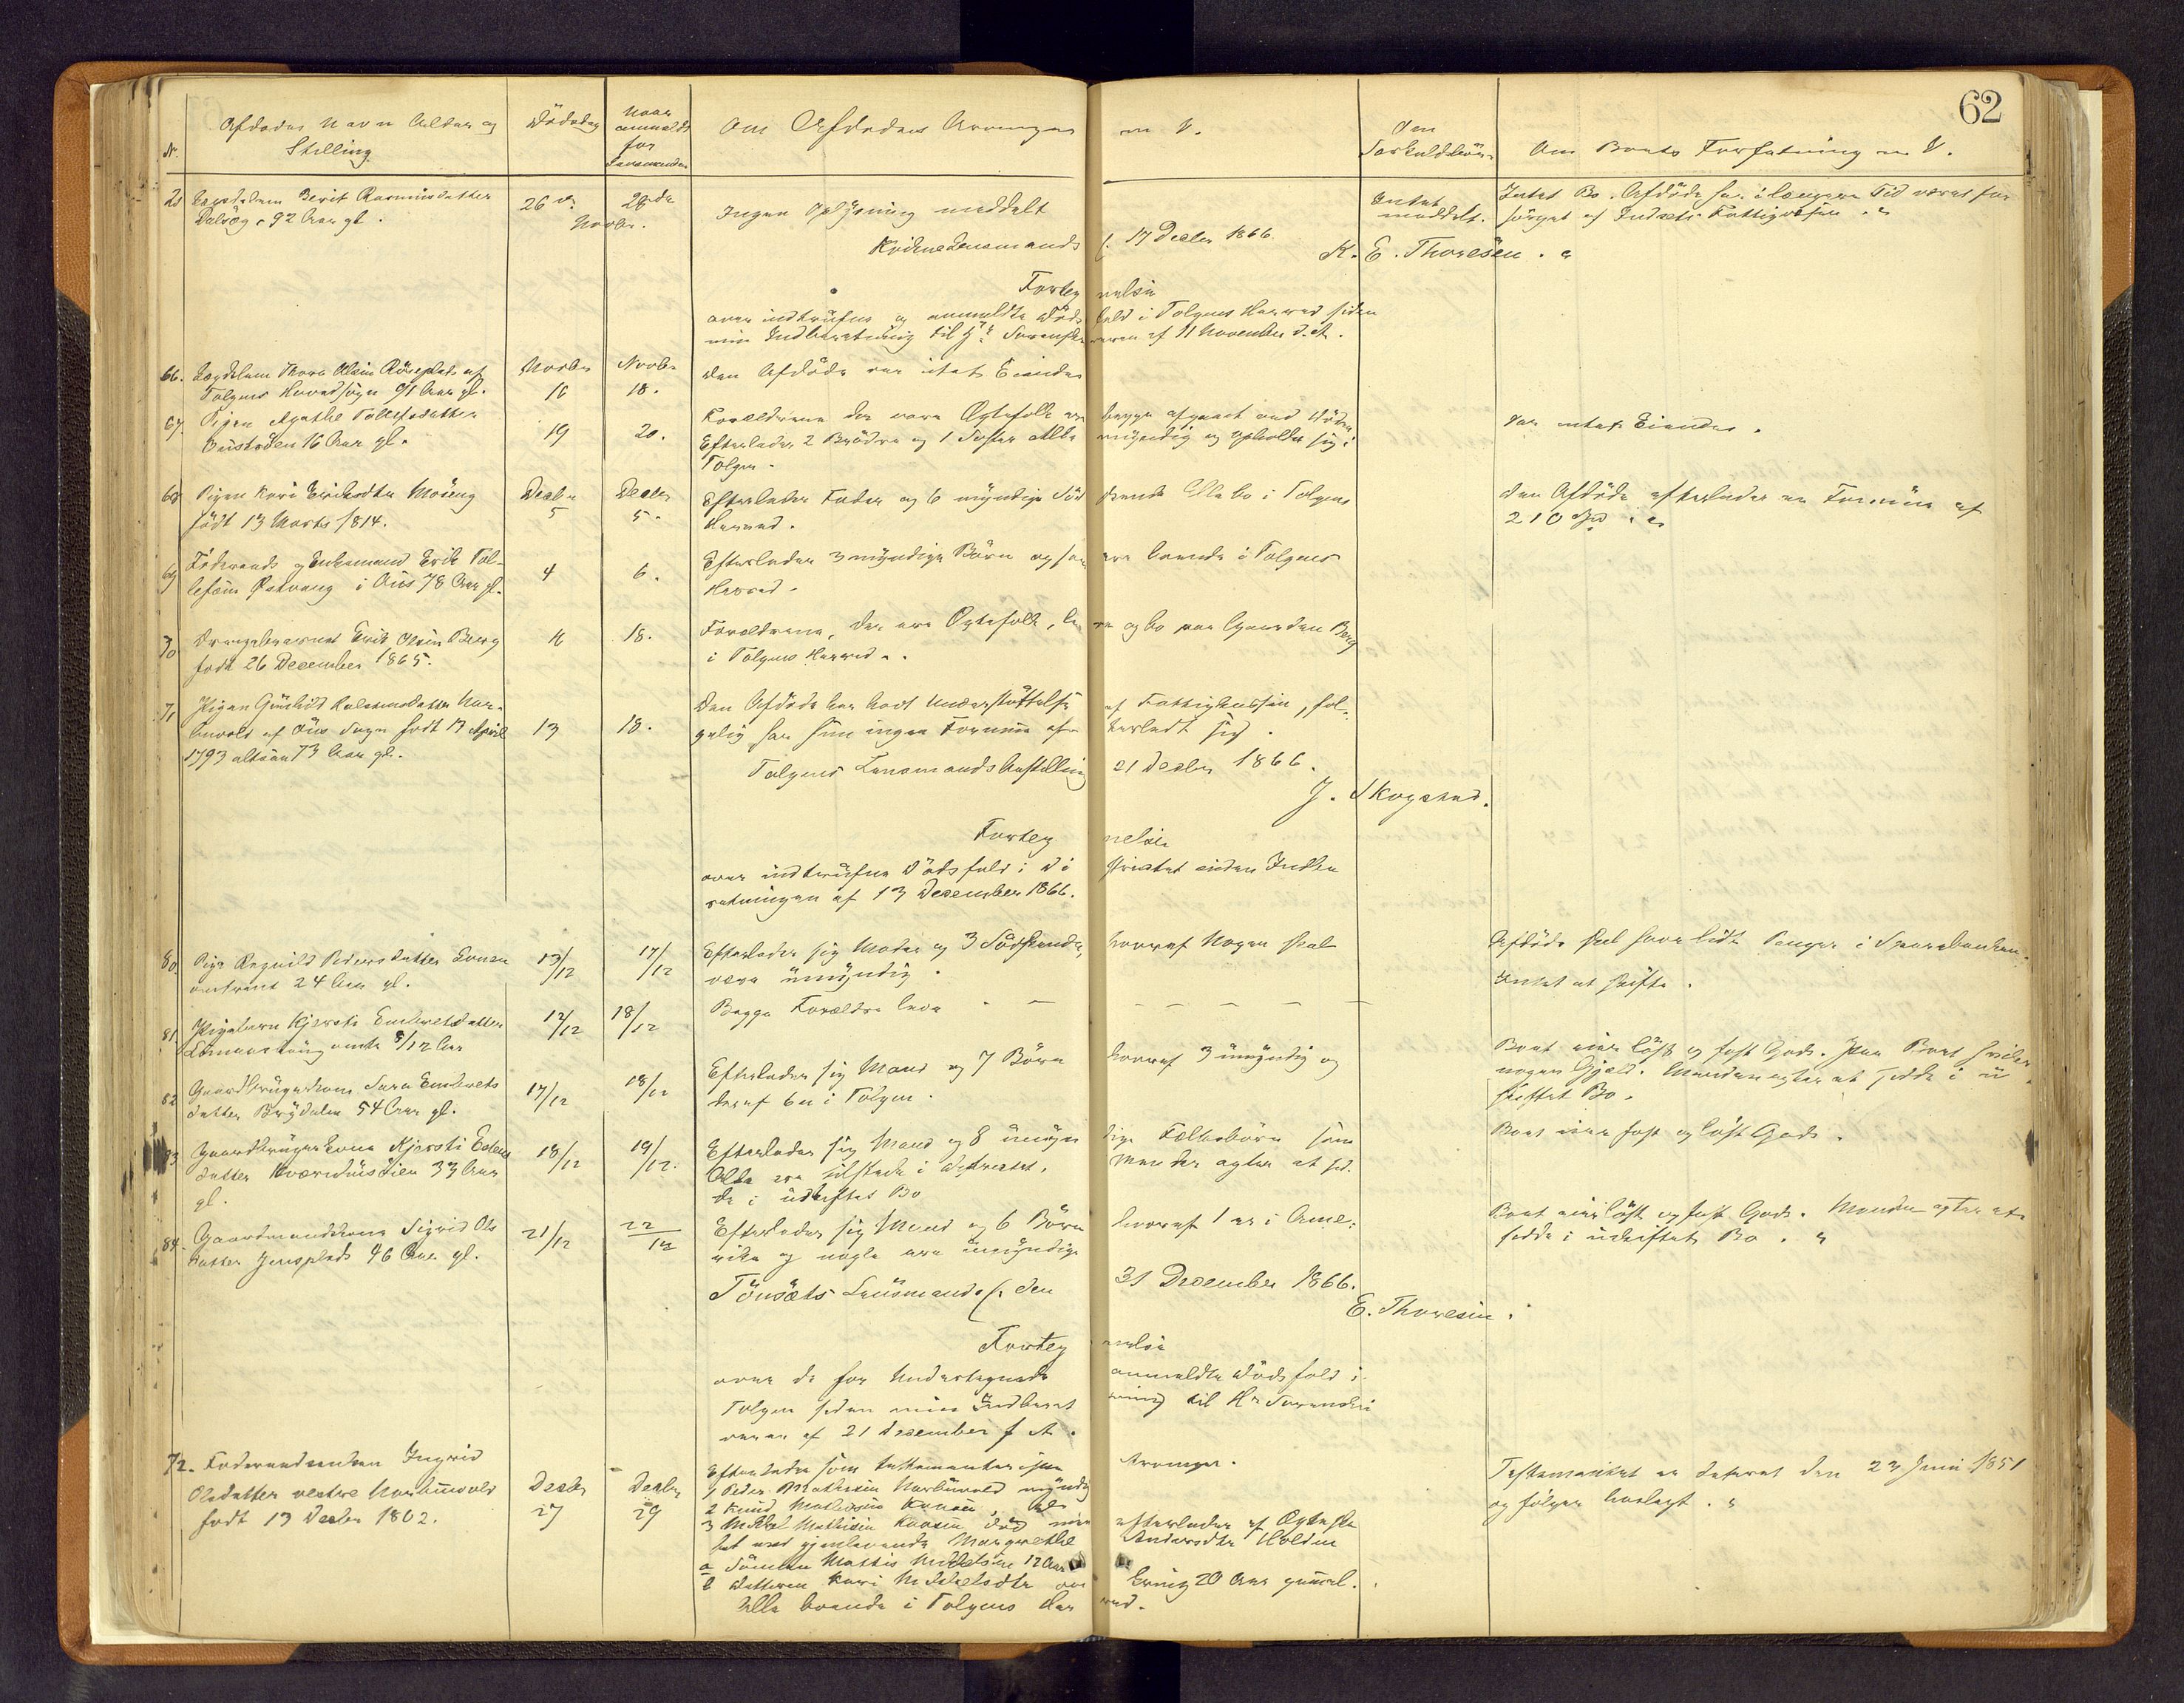 62
N. Afdødes Navn Alder og Stilling
Dødsdag
Naar anmeldt for Lensmanden
Om Afdødes Arvinger m V.
Om Boets Forfatning m V.
Berit Rasmusdatter
92 Aar gl.
26 d.
28de
Novbr.
Ingen Oplysning meddelt
Intet meddelt.
Intet Bo. Afdøde har i længere Tid været for
sørget af Indsets Fattigvæsen.
Kvikne Lensmands 17 Decbr 1866.
K. E. Thoresen.
Fortegnelse
over indtrufne og anmeldte Dødsfald i Tolgens Herred siden
min Indberetning til Hr. Sorenskriveren af 11 November d.A.
66. Lægdslem Thore Olsen Røseplads af
Tolgens Hovedsogn 91 Aar gl.
Novbr
16
Novbr
18.
Den Afdøde var intet Eiendes
67. Pigen Agathe Tollefsdatter
16 Aar gl.
19
20.
Forældrene der vare Ægtefolk ere begge afgaaet ved Døden
Efterlader 2 Brødre og 1 Søster Alle myndig og opholder sig i
Tolgen.
Var intet Eiendes.
68 Pigen Kari Eriksdtr Moseng
født 13 Marts 1814.
Decbr
5
Decbr
5.
Efterlader Fader og 6 myndige Sødskende Alle bo i Tolgens
Herred.
Den Afdøde efterlader en Formue af
210 Spd.
69 Føderaads og Enkemand Erik Tol-
lefsen Østvang i Øus 78 Aar gl.
4
6.
Efterlader 3 myndige Børn og som ere boende i Tolgens
Herred.
70 Drengebarnet Erik Olsen Berg
født 26 December 1865.
16
18.
Forældrene, der ere Ægtefolk, leve og bo paa Gaarden Berg
i Tolgens Herred.
71 Pigen Gunhild
af Øus Sogn født 17 April
1793 altsaa 73 Aar gl.
13
18.
Den Afdøde har havt Understøttelse af Fattigkassen, føl-
gelig har hun ingen Formue efterladt sig.
Tolgens Lensmands Bestilling 21 Decbr 1866.
J. Skogstad.
Fortegnelse
over indtrufne Dødsfald i Distriktet siden Indbe
retningen af 13 December 1866.
80 Pige Ragnild Pedersdatter
omtrent 24 Aar gl.
13/12
17/12
Efterlader sig Moder og 3 Sødskende, hvoraf Nogen skal
være umyndig.
Afdøde skal have lidt Penger i Sparebanken.
Intet at skifte.
81 Pigebarn Kjersti Embretsdatter
8/12 Aar
12/12
18/12
Begge Forældre leve
82 Gaardbrugerkone Sara Embrets
datter Brydalen 54 Aar gl.
17/12
18/12
Efterlader sig Mand og 7 Børn hvoraf 3 umyndig og
deraf bo i Tolgen.
Boet eier løst og fast Gods. Paa Boet hviler
nogen Gjæld. Manden agter at sidde i u
skiftet Bo.
83 Gaardbrugerkone Kjersti
datter 33 Aar
gl.
18/12
19/12.
Efterlader sig Mand og 8 umyndige Fællesbørn som
Alle ere tilstede i Distriktet. Manden agter at sid-
de i uskiftet Bo
Boet eier fast og løst Gods.
84. Gaardmandskone Sigrid Ols
datter Jensplads 46 Aar gl.
21/12
22/12
Efterlader sig Mand og 6 Børn hvoraf 1 er i Ame-
rika og nogle ere umyndige
Boet eier løst og fast Gods. Manden agter at
sidde i uskiftet Bo.
Tønsæts Lensmands den 31 December 1866.
E. Thoresen.
Fortegnelse
over de for Undertegnede anmeldte Dødsfald i
Tolgen siden min Indberetning til Hr Sorenskri
veren af 21 December f A.
72. Føderaadsenken Ingrid
Olsdatter vestre
født 13 Decbr 1802.
Decbr
27
Decbr
29
Efterlader som testamenteriske Arvinger.
1 Peder Mathisen myndig
2 Knud Mathisen
3 Mikkel Mathisen død men efterlader af Ægteska
bet med gjenlevende Margrethe Andersdtr Holden
a Sønnen Mathis Mikkelsen 12 Aar
b Datteren Kari Mikkelsdtr 20 Aar gammel.
Alle boende i Tolgens Herred.
Testamentet er dateret den 23 Juni 1851
og følger hoslagt.